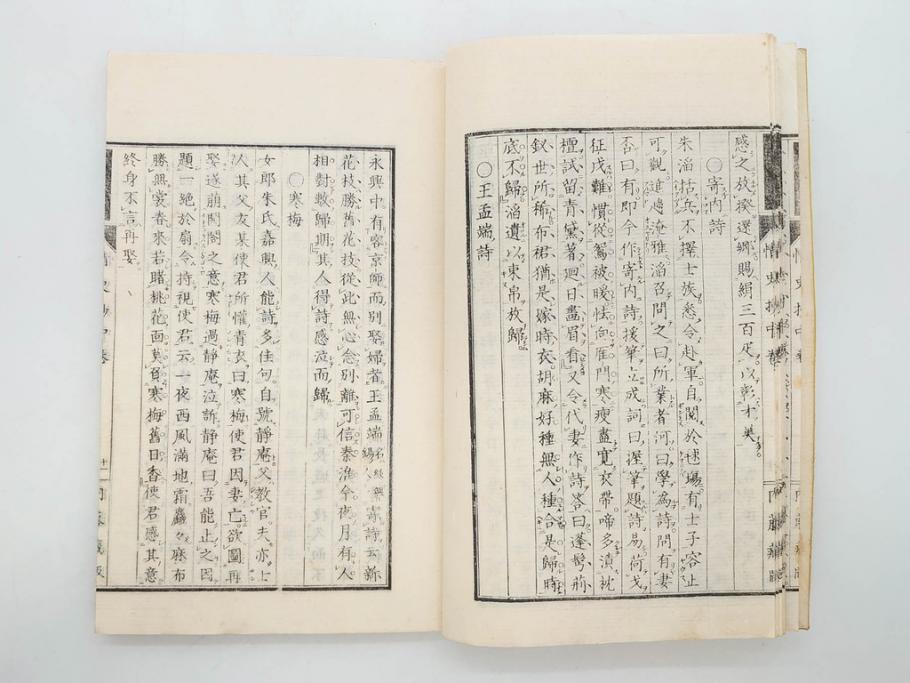 感之放襖還鄉賜絹三百疋以彰才美
○寄内詩
朱滔括兵不擇士族悉令赴軍自閱於毬場有士子容止
可觀進趨淹雅滔召問之曰所業者何曰學為詩問有妻
否曰有即令作寄内詩援筆立成詞曰握筆題詩易荷戈
征戍難慣從鴛被暖怯向雁門寒瘦盡寬衣帶啼多漬枕
檀試留青黛著迴日畫眉看又令代妻作詩答曰蓬鬢荊
釵世所稀布裙猶是嫁時衣胡麻好種無人種合是歸時
底不歸滔遺以束帛放歸
○王孟端詩
情史抄中卷
永興中有客京師而別娶婦者王孟端寄詩云新
花枝勝舊花枝從此無心念別離可信秦淮今夜月有人
相對數歸期其人得詩感泣而歸
○寒梅
女郎朱氏嘉興人能詩多佳句自號靜庵父教官夫亦士
人其父友某使君所懽青衣曰寒梅使君因妻亡欲圖再
娶遂萌開閤之意寒梅過靜庵泣訴靜庵曰吾能止之因
題一絶於扇令持視使君云一夜西風滿地霜麤々麻布
勝無裳春來若睹桃花面莫負寒梅舊日香使君感其意
終身不言再娶
十一